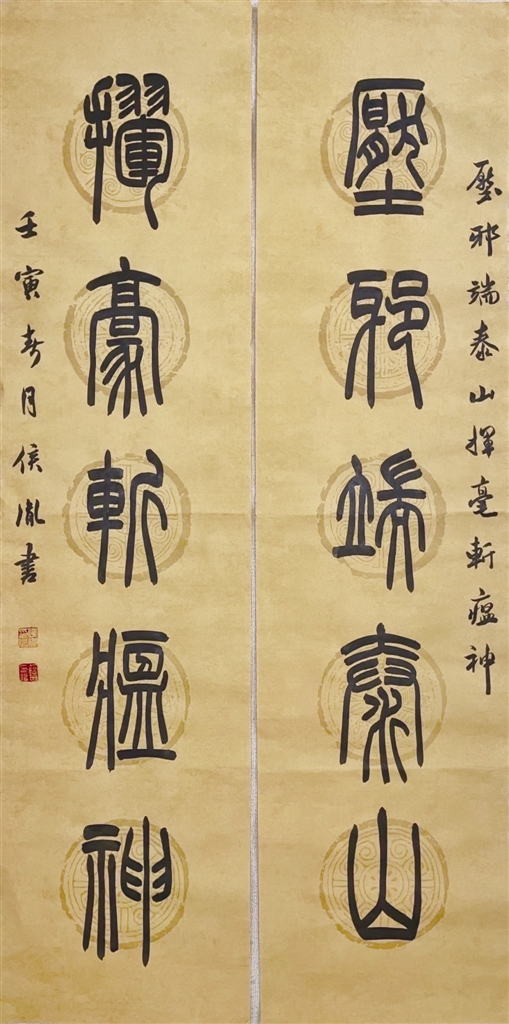 壓邪端泰山揮毫斬瘟神
壓邪端泰山
揮豪斬瘟神
壬寅春月侯胤書